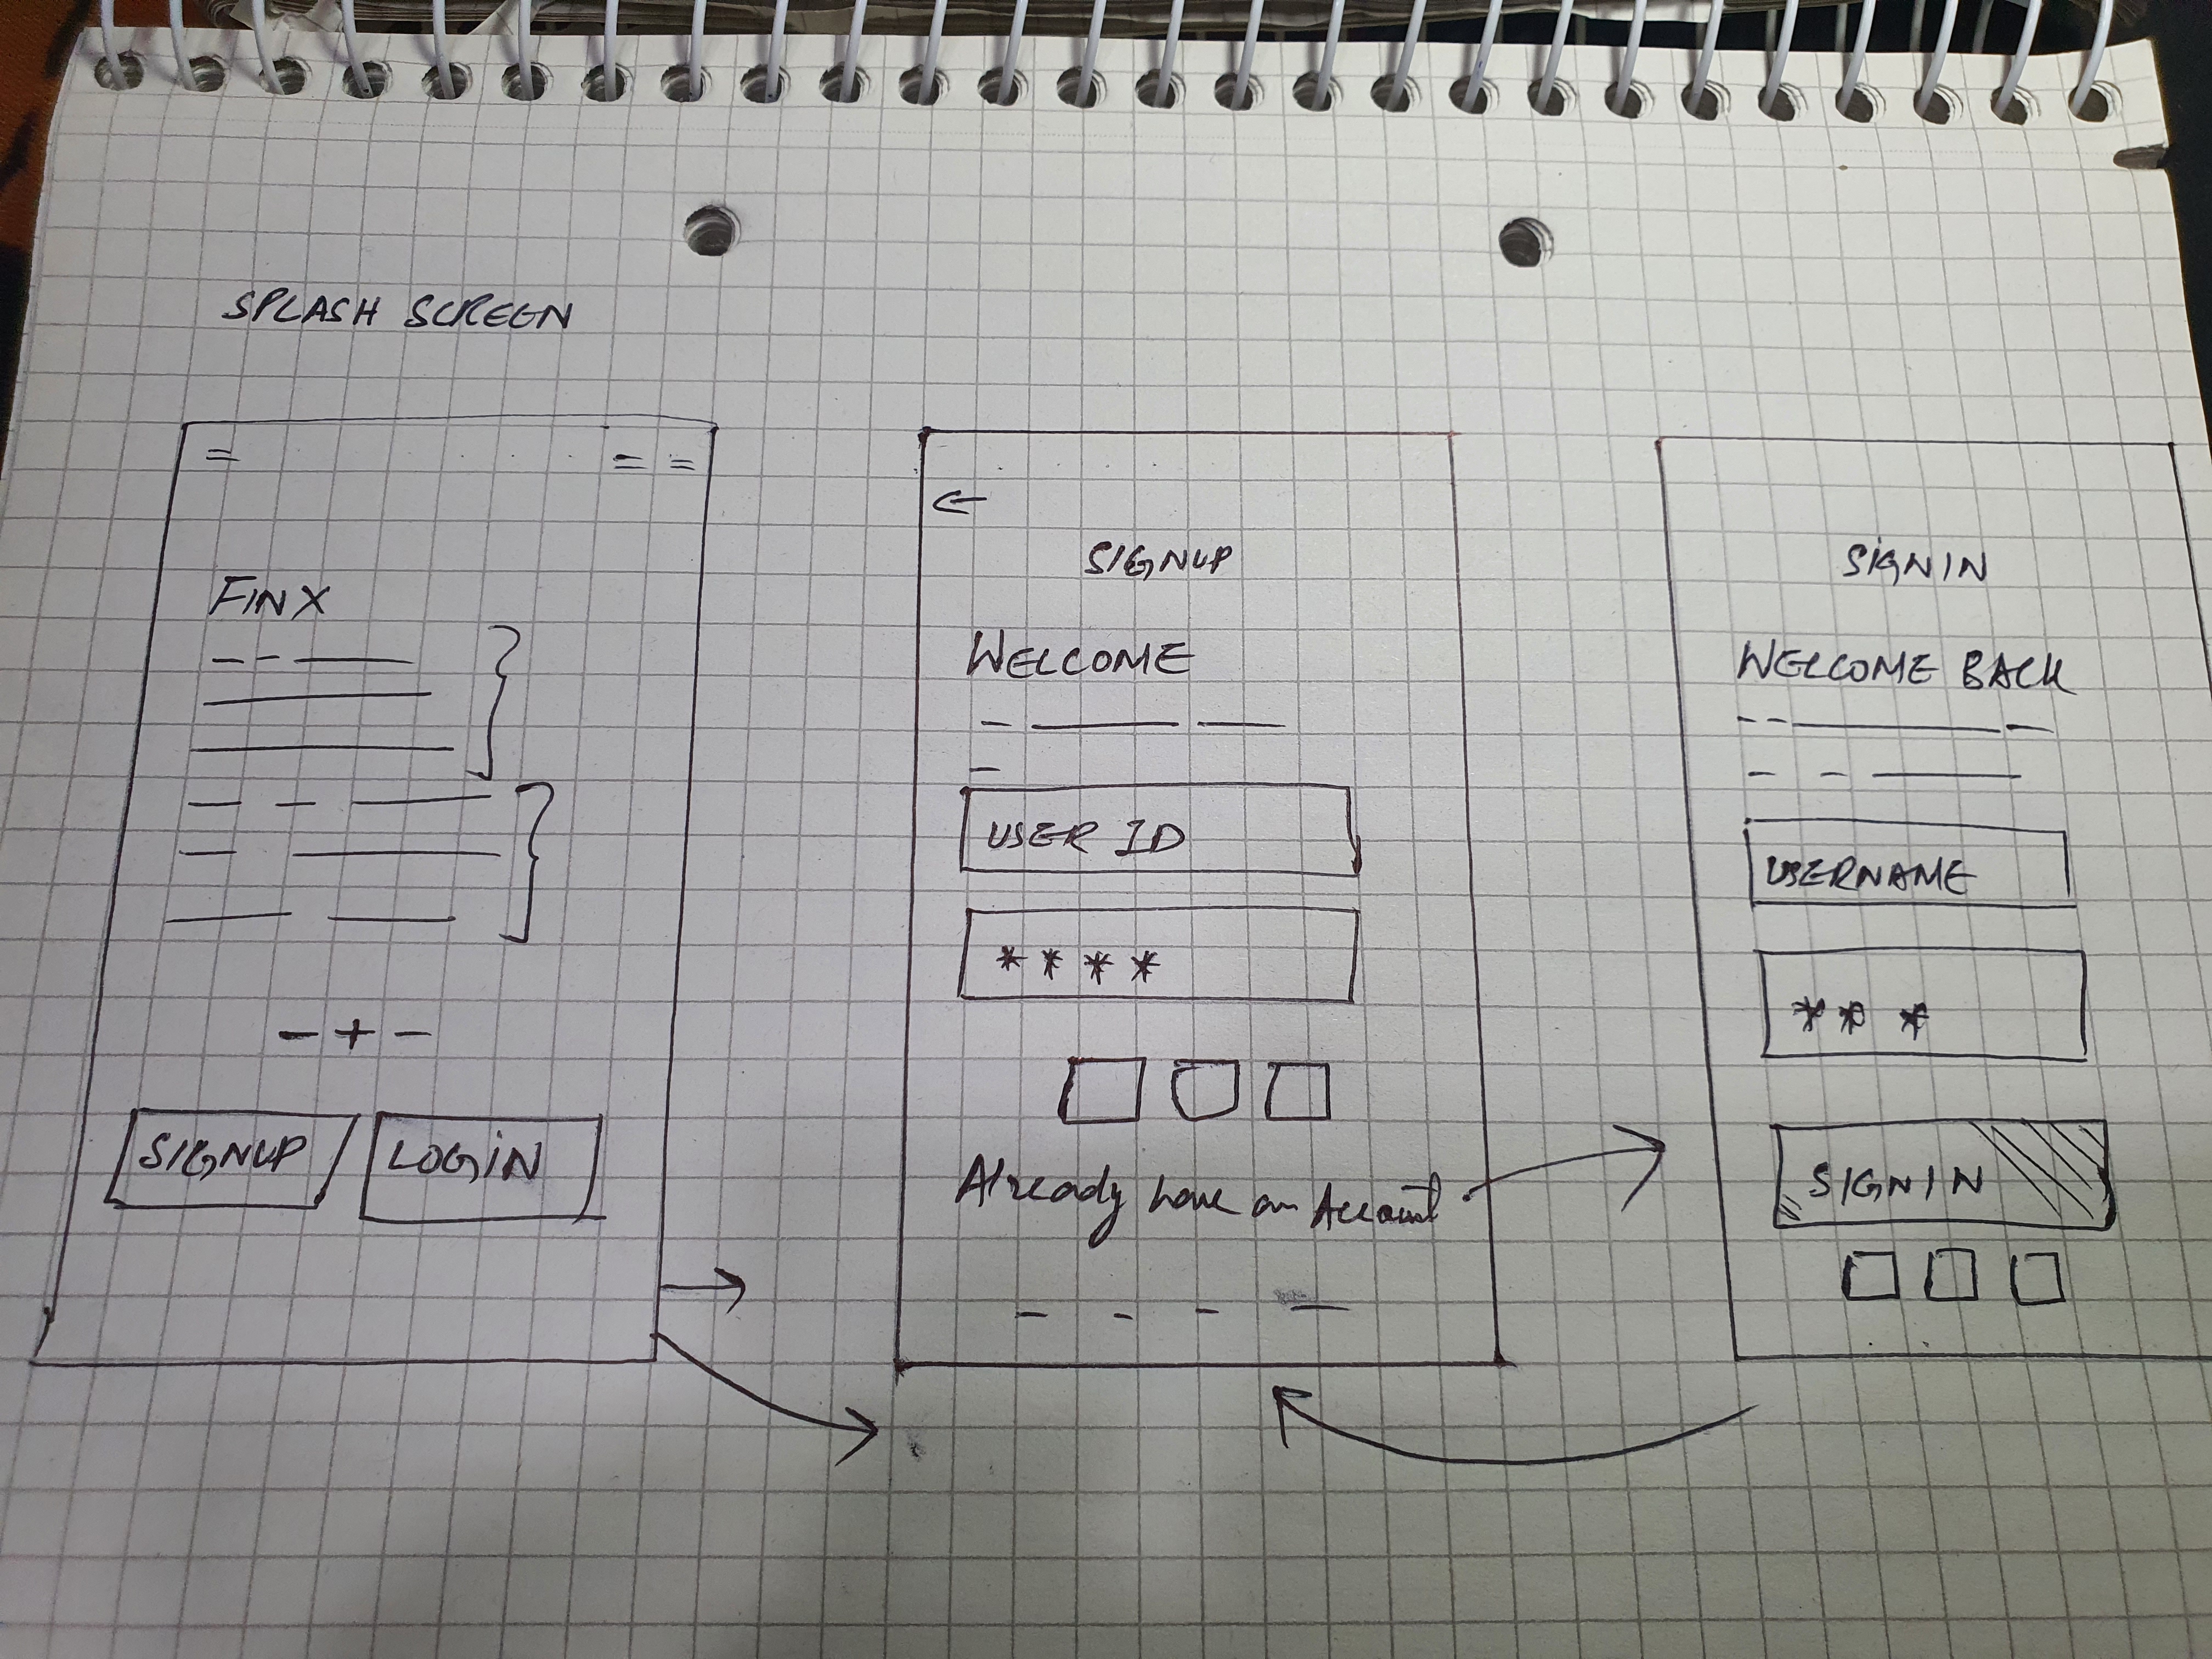 SPLASH SCREEN
FINX
SIGNUP
LOGIN
SIGNUP
WELCOME
USER ID
****
Already have an Account
SIGNIN
WELCOME BACK
USERNAME
** *
SIGNIN